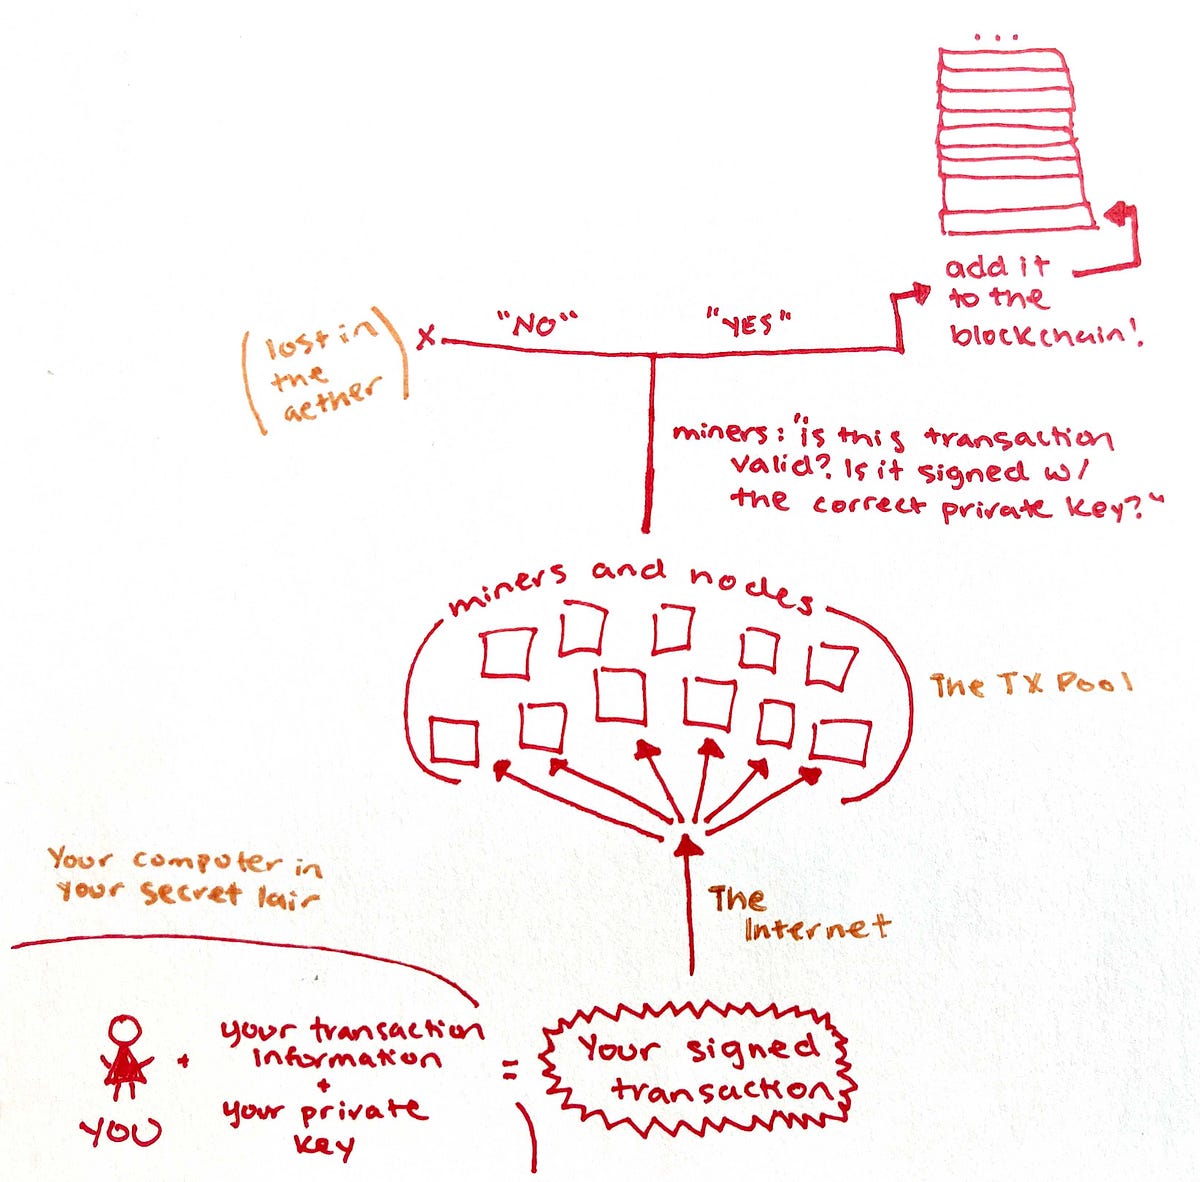 . . .
add it
to the
blockchain!
"NO"
"YES"
X
(lost in
the
aether)
miners: "is this transaction
valid? Is it signed w/
the correct private key?"
miners and nodes
The TX Pool
Your computer in
your secret lair
The
Internet
YOU
+
your transaction
information
+
your private
key
=
Your signed
transaction